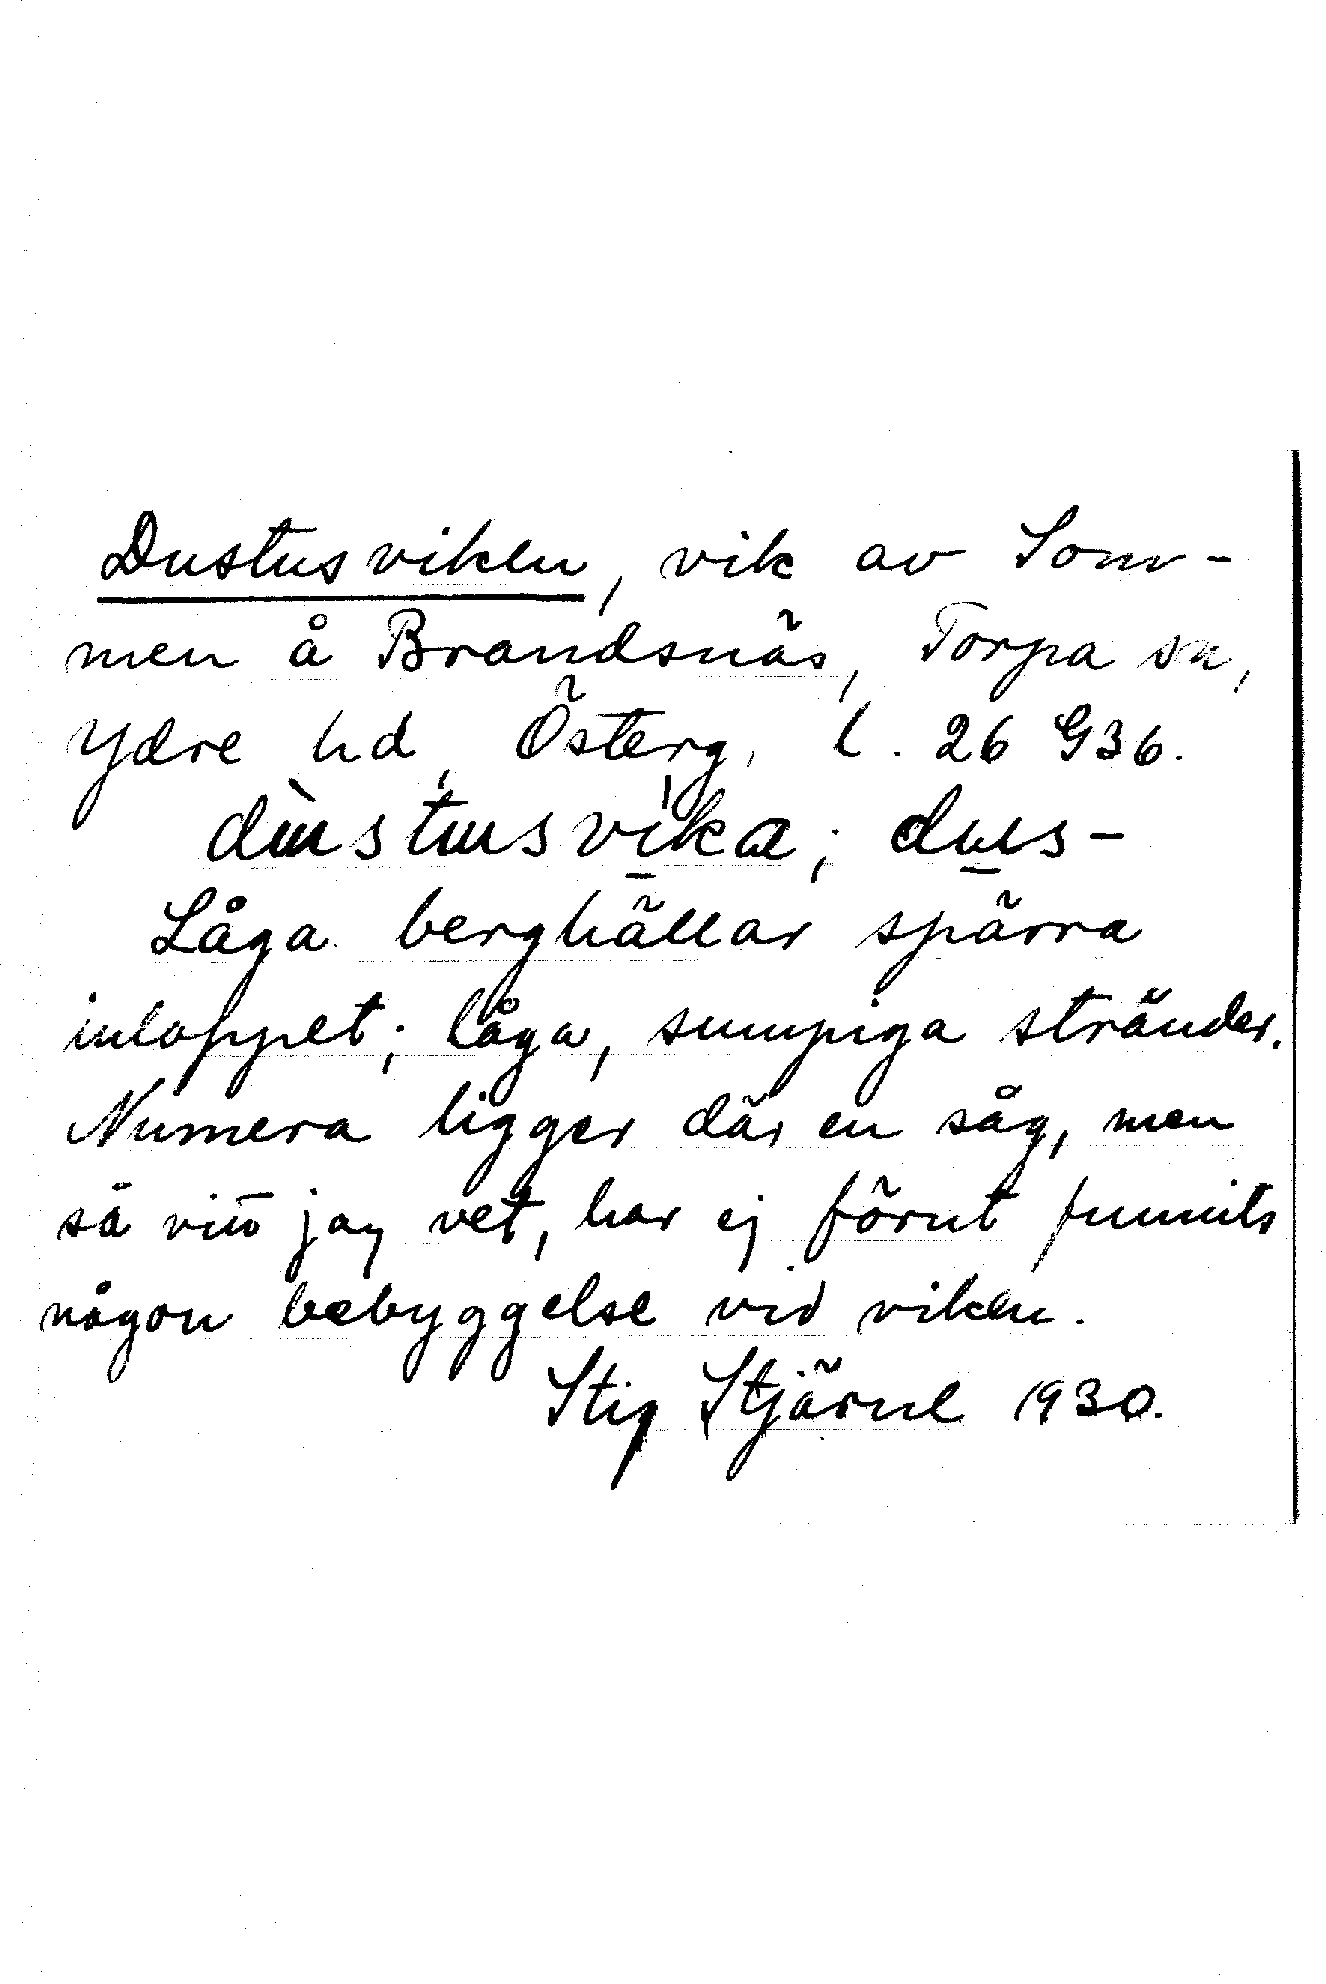 Dustusviken, vik av Som-
men å Brandsnäs, Torpa sn,
Ydre hd, Österg. l. 26 G36.
dùstusvika; dus-
Låga berghällar spärra
inloppet; låga, sumpiga stränder.
Numera ligger där en såg, men
så vitt jag vet, har ej förut funnits
någon bebyggelse vid viken.
Stig Stjärne 1930.